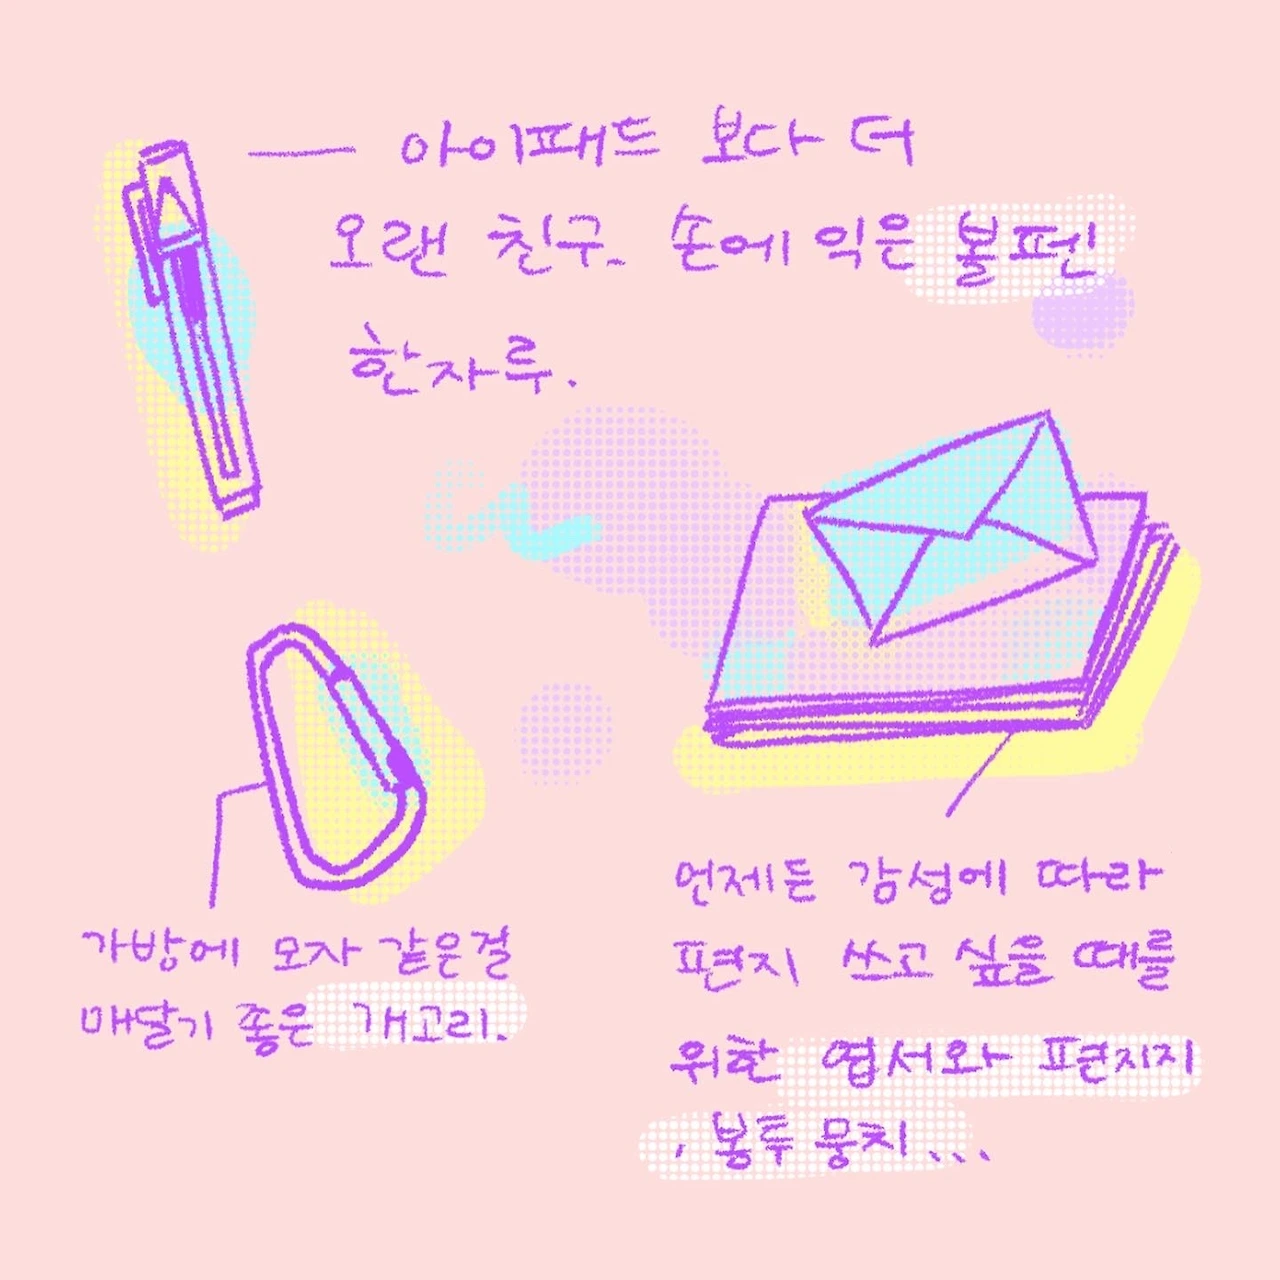 아이패드 보다 더
오랜 친구. 손에 익은 볼펜
한자루.
가방에 모자 같은걸
매달기 좋은 개고리.
언제든 감성에 따라
편지 쓰고 싶을 때를
위한 엽서와 편지지
, 봉투 뭉치...